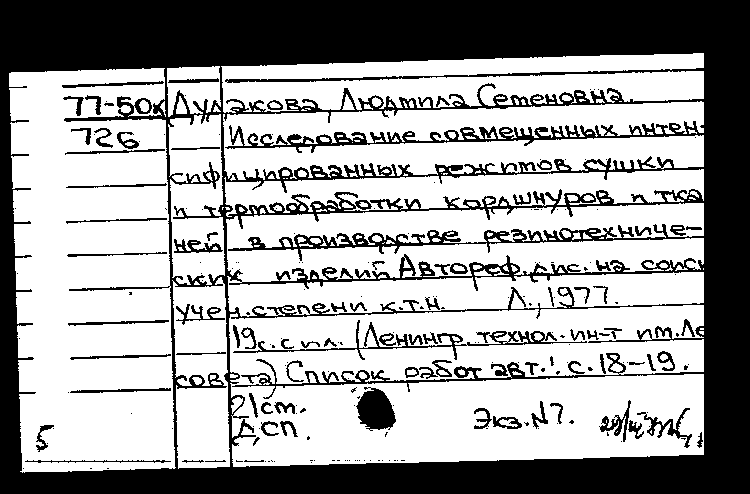 77-50к Дудакова, Людмила Семеновна.
726 Исследование совмещенных интен-
сифицированных режимов сушки
и термообработки кордшнуров и тка
ней в производстве резинотехниче-
ских изделий. Автореф. дис. на соиск
учен. степени к.т.н. Л., 1977.
19 с. с ил. (Ленингр. технол. ин-т им. Ле
совета) Список работ авт.: с. 18-19.
21 ст.
5 ДСП. Экз. №7.